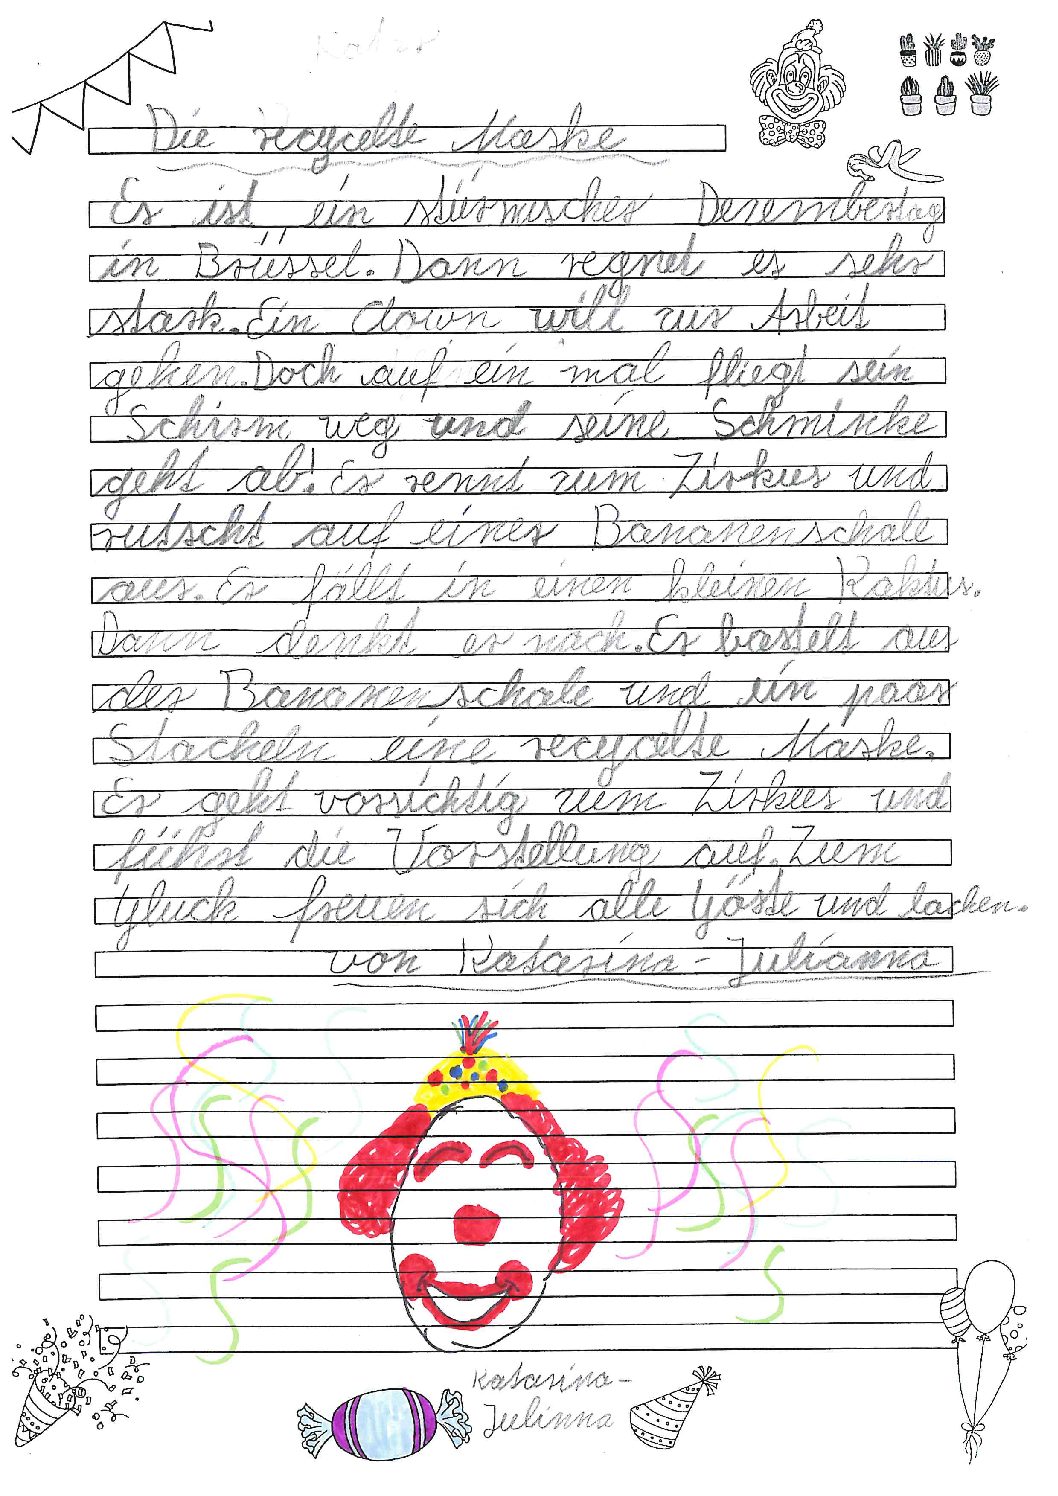 Kater
Die recycelte Maske
Es ist ein stürmischer Dezembertag
in Brüssel. Dann regnet es sehr
stark. Ein Clown will zur Arbeit
gehen. Doch auf ein mal fliegt sein
Schirm weg und seine Schminke
geht ab! Er rennt zum Zirkus und
rutscht auf einer Bananenschale
aus. Er fällt in einen kleinen Kaktus.
Dann denkt er nach. Er bastelt aus
der Bananenschale und ein paar
Stacheln eine recycelte Maske.
Er geht vorsichtig zum Zirkus und
führt die Vorstellung auf. Zum
Glück freuen sich alle Gäste und lachen.
von Katarina-Julianna
Katarina-
Julinna